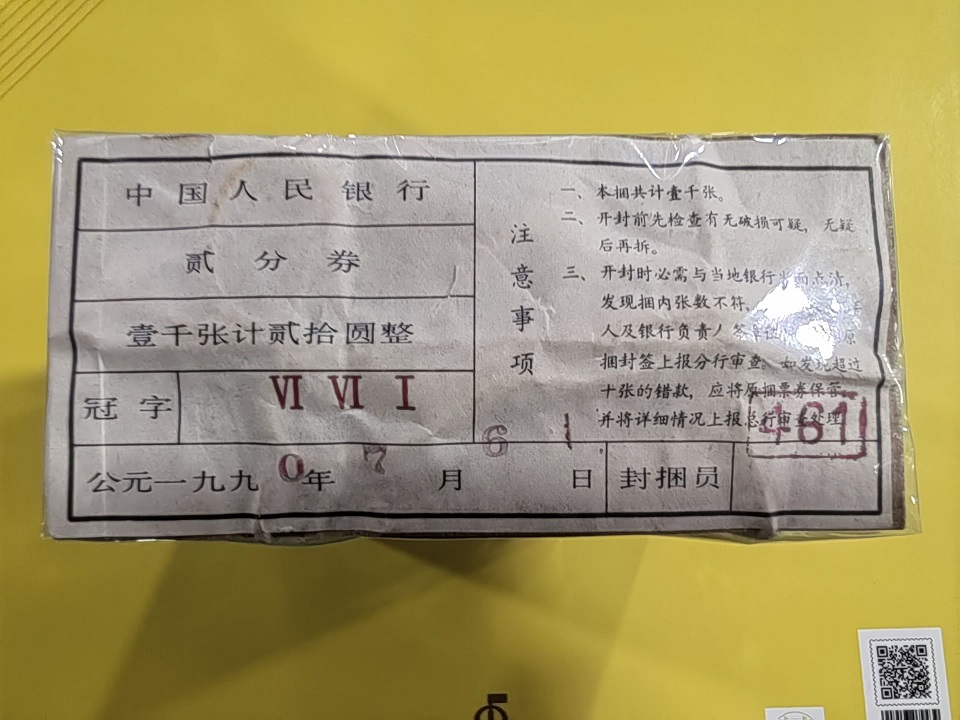 中国人民银行
贰分券
壹千张计贰拾圆整
冠字 VI VI I
公元一九九0年 7 月 6 1 日 封捆员
注意事项
一、本捆共计壹千张。
二、开封前先检查有无破损可疑，无疑
后再拆。
三、开封时必需与当地银行 面点清，
发现捆内张数不符，
人及银行负责人签章证 原
捆封签上报分行审查。如发现超过
十张的错款，应将原捆票券保管，
并将详细情况上报总行审查处理
481